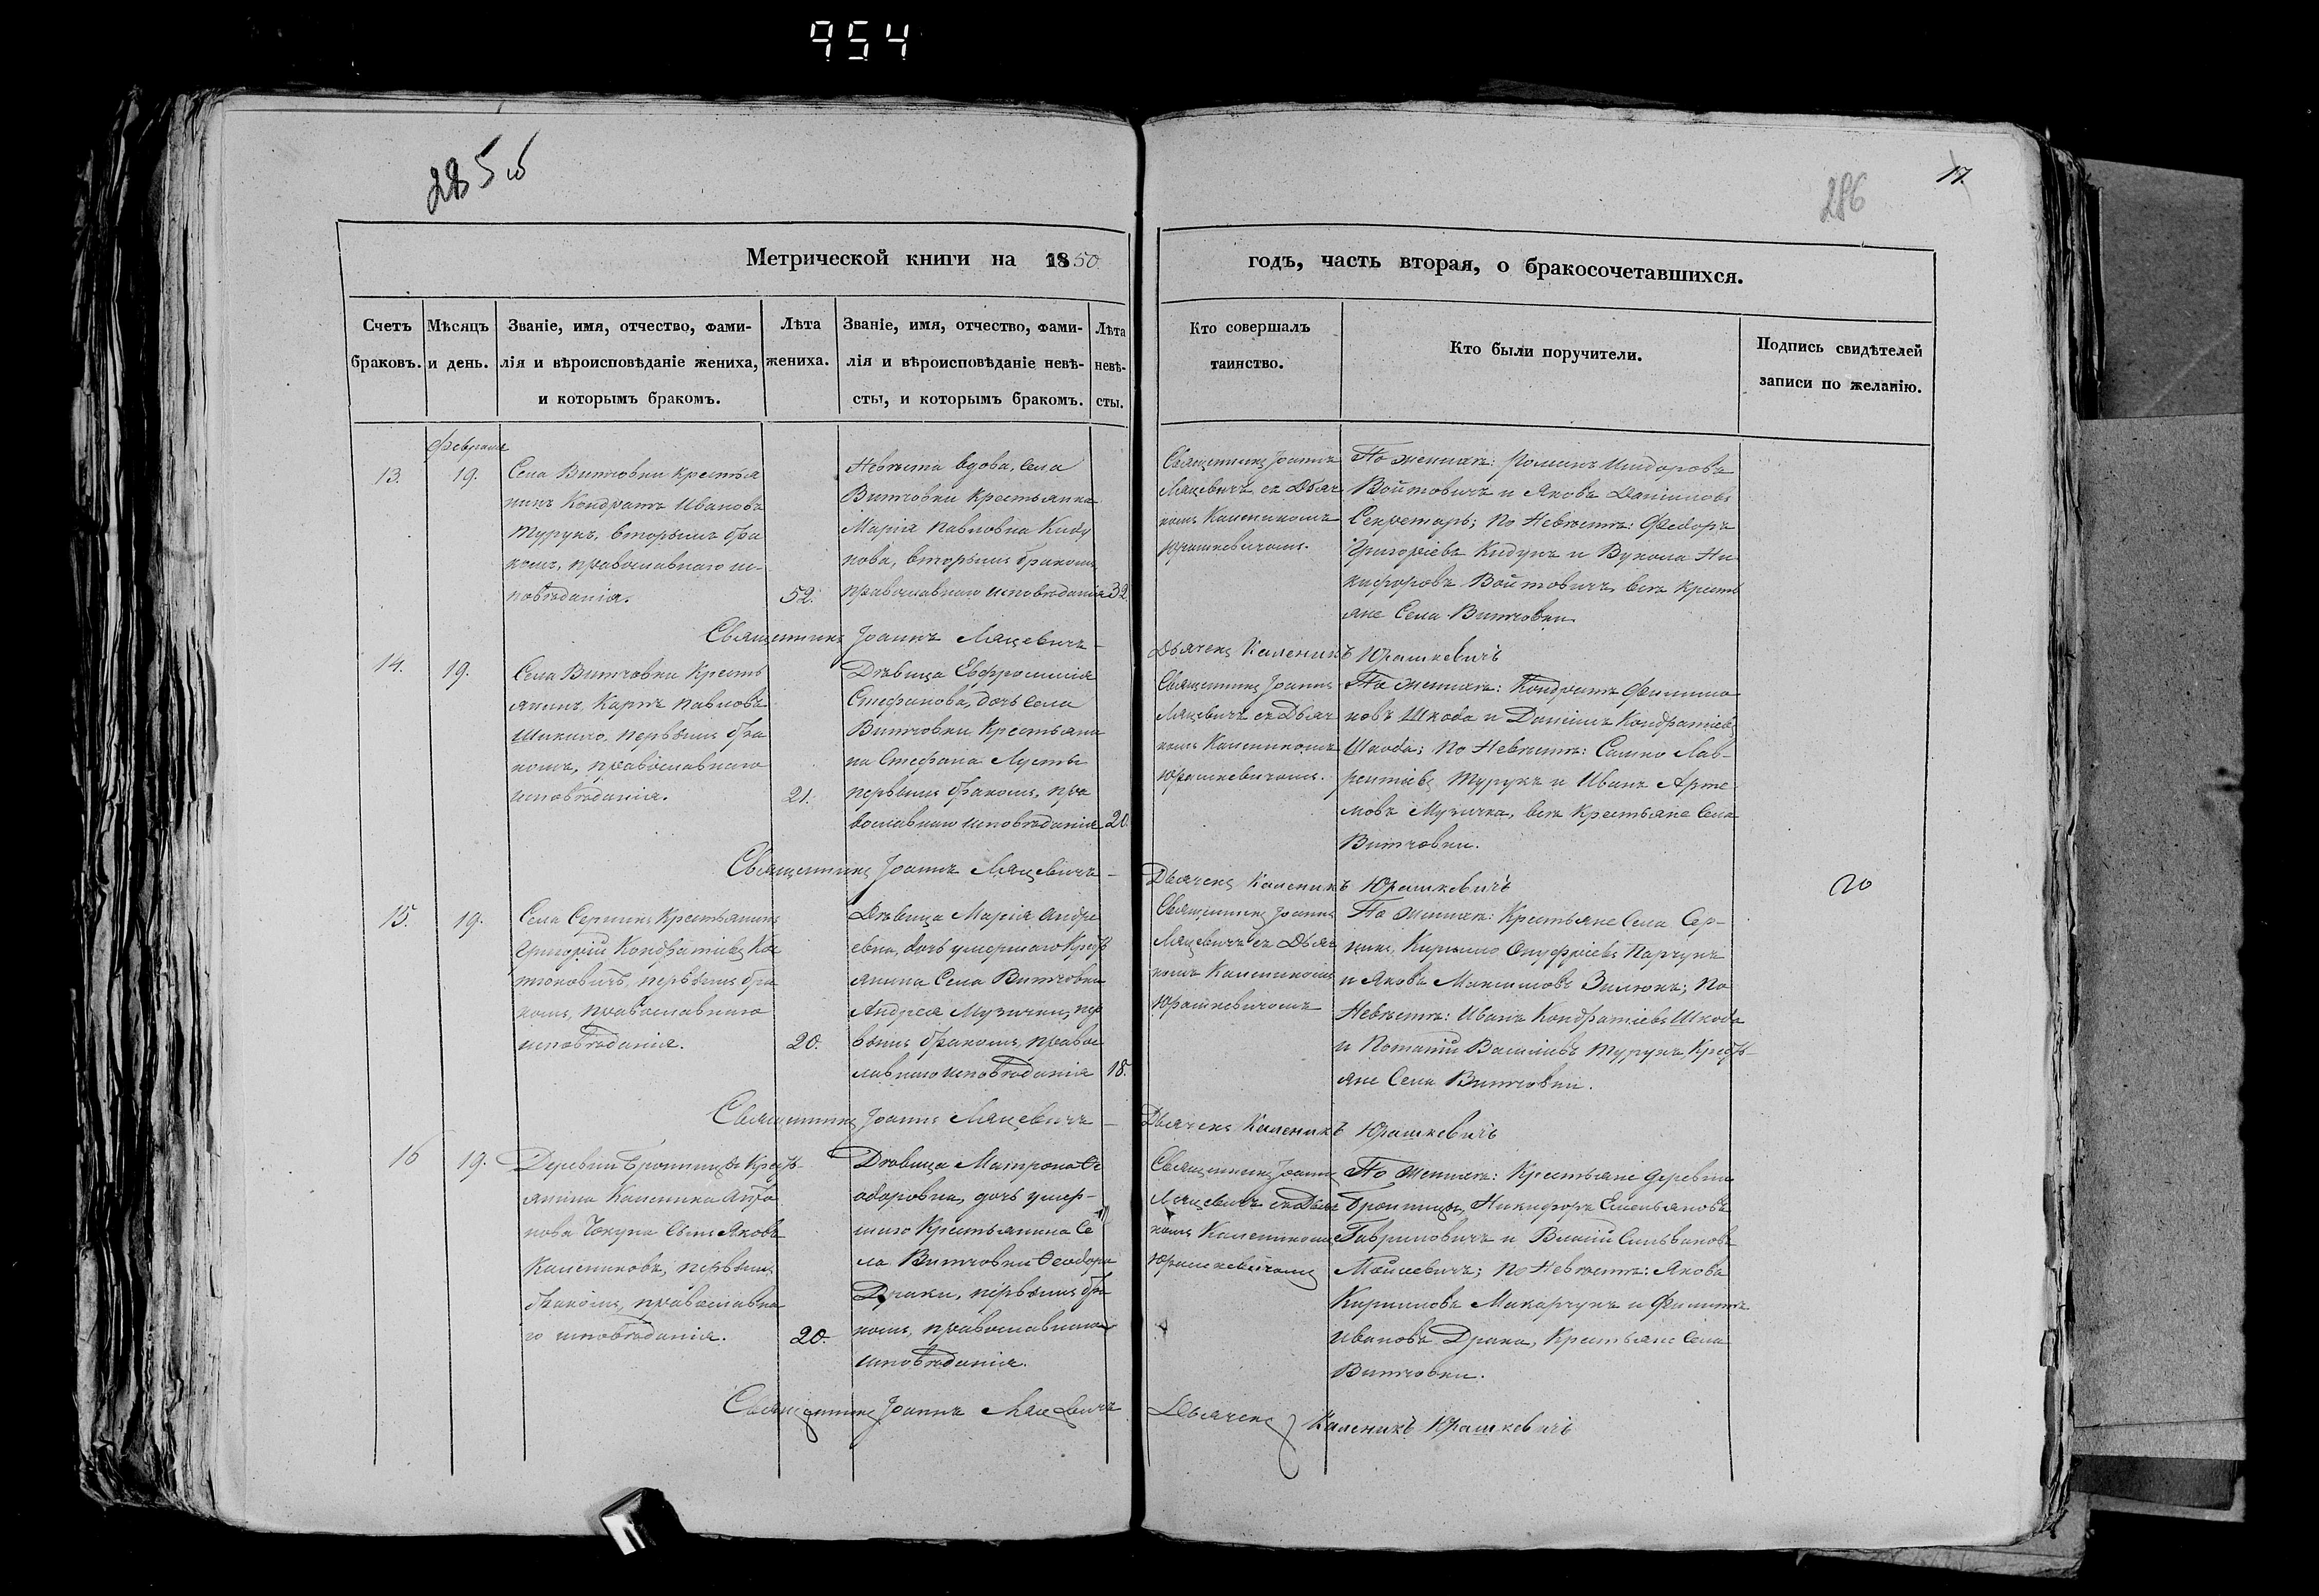 954
285 об
286
17.
Метрической книги на 1850
годъ, часть вторая, о бракосочетавшихся.
Счетъ браковъ.
Мѣсяцъ и день.
Званіе, имя, отчество, фами-
лія и вѣроисповѣданіе жениха,
и которымъ бракомъ.
Лѣта
жениха.
Званіе, имя, отчество, фами-
лія и вѣроисповѣданіе невѣ-
сты, и которымъ бракомъ.
Лѣта
невѣ-
сты.
Кто совершалъ
таинство.
Кто были поручители.
Подпись свидѣтелей
записи по желанію.
Февраля
13.
19.
Села Витчовки крестья
нинъ Кондратъ Ивановъ
Турукъ, вторымъ бра
комъ, православнаго ис-
повѣданія.
52.
Невѣста вдова, села
Витчовки крестьянка
Марія Павловна Киду
нова, вторымъ бракомъ,
православнаго исповѣданія
32.
Священникъ Іоаннъ
Мацевичъ съ Дьяч
комъ Каленикомъ
Юрашкевичомъ.
По женихѣ: Романъ Исидоровъ
Войтовичъ и Яковъ Даніиловъ
Секретарь; по Невѣстѣ: Федоръ
Григоріевъ Кидунъ и Вукола Ни
кифоровъ Войтовичъ, всѣ кресть
яне Села Витчовки.
Священникъ Іоаннъ Мацевичъ
Дьячекъ Каленикъ Юрашкевичъ
14.
19.
Села Витчовки Кресть
янинъ, Карпъ Павловъ
Шикило, первымъ бра
комъ, православнаго
исповѣданія.
21.
Дѣвица Евфросинія
Стефанова, дочь села
Витчовки Крестьяни
на Стефана Мусты
первымъ бракомъ, пра
вославнаго исповѣданія
20.
Священникъ Іоаннъ
Мацевичъ съ Дьяч
комъ Каленикомъ
Юрашкевичомъ.
По женихѣ: Кондратъ Филиппо
новъ Шкода и Даніилъ Кондратіевъ
Шкода; по Невѣстѣ: Сашко Лав-
рентіевъ Турукъ и Иванъ Арте
мовъ Музичка, всѣ крестьяне Села
Витчовки.
Священникъ Іоаннъ Мацевичъ
Дьячекъ Каленикъ Юрашкевичъ
20
15.
19.
Села Серникъ Крестьянинъ
Григорій Кондратіевъ Ко
тковичъ, первымъ бра
комъ, православнаго
исповѣданія.
20.
Дѣвица Марія Андре
евна, дочь умершаго Крестъ
янина Села Витчовки
Андрея Музички, пер
вымъ бракомъ, правос
лавнаго исповѣданія
18.
Священникъ Іоаннъ
Мацевичъ съ Дьяч
комъ Калеником
Юрашкевичомъ
По женихѣ: Крестьяне Села Сер-
никъ, Кирило Онуфріевъ Парчукъ
и Яковъ Максимовъ Зилюкъ; По
Невѣстѣ: Иванъ Кондратіевъ Шкода
и Потапій Василіевъ Турукъ, Кресть-
яне Села Витчовки.
Священникъ Іоаннъ Мацевичъ
Дьячекъ Каленикъ Юрашкевичъ
16
19.
Деревни Бронницъ Кресть-
янина Каленика Анто
нова Чокуна Сынъ Яковъ
Калениковъ, первымъ
бракомъ, православна
го исповѣданія.
20.
Дѣвица Матрона Ѳе
одоровна, дочь умер-
шаго Крестьянина Се
ла Витчовки Ѳеодора
Драки, первымъ бра
комъ, православнаго
исповѣданія.
Священникъ Іоаннъ
Мацевичъ съ Дьяч
комъ Калеником
Юрашкевичомъ
По Женихѣ: Крестьяне деревни
Бронницъ, Никифоръ Емельяновъ
Гавриловичъ и Власій Сильвановъ
Мойсевичъ; по Невѣстѣ: Яковъ
Кирилловъ Макарчукъ и Филиппъ
Ивановъ Драка, Крестьяне Села
Витчовки.
Священникъ Іоаннъ Мацевичъ
Дьячекъ Каленикъ Юрашкевичъ